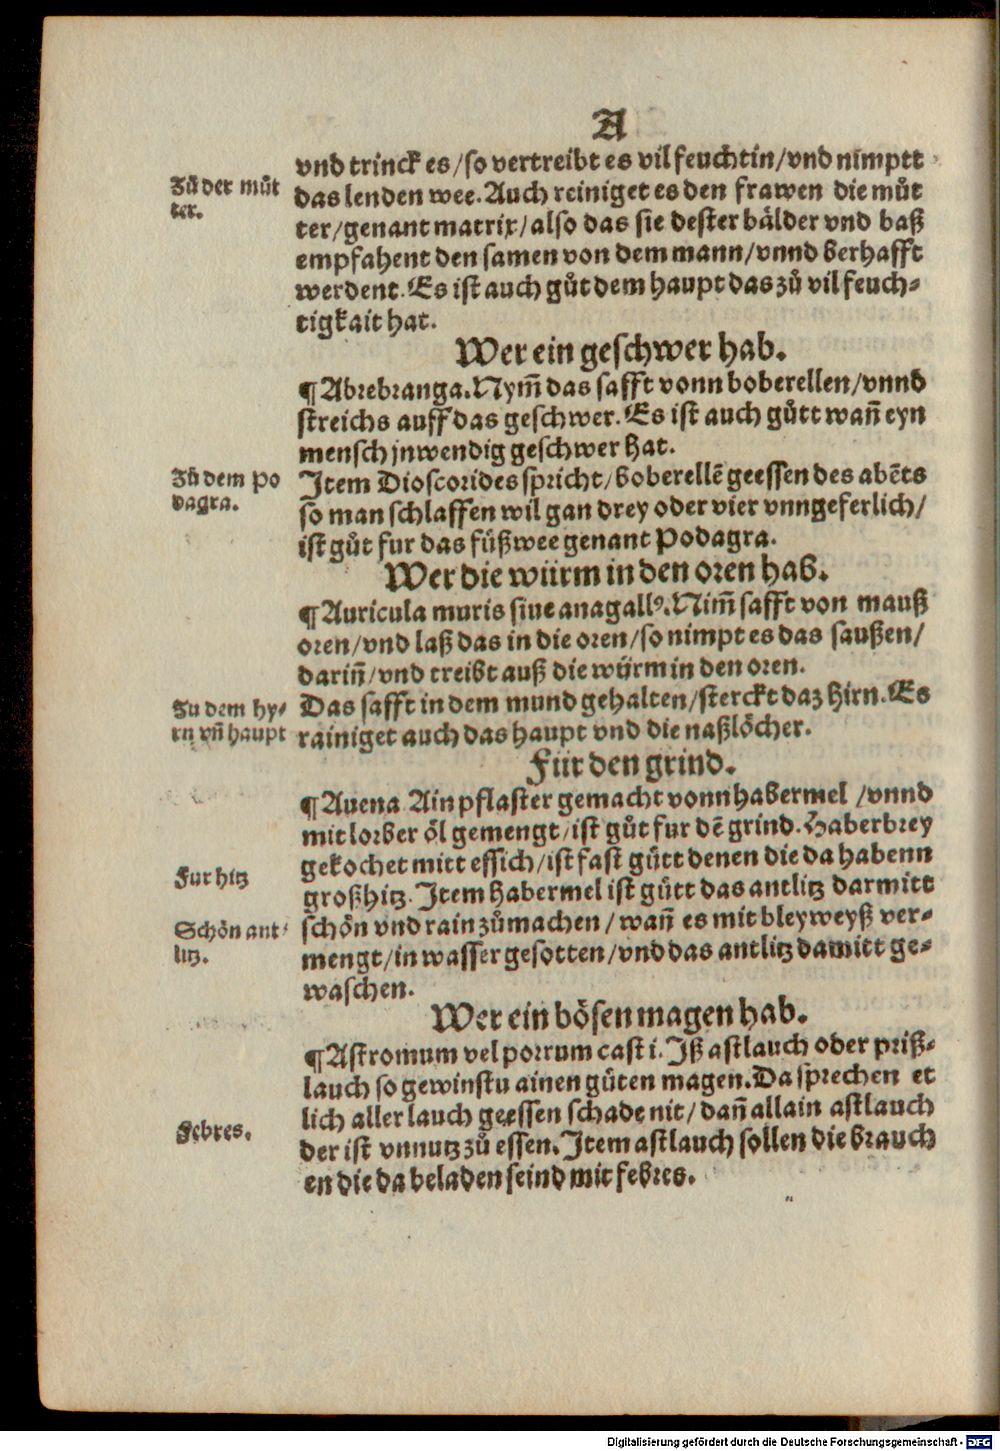 A
vnd trinck es/so vertreibt es vil feuchtin/vnd nimptt
Zů der můt
das lenden wee. Auch reiniget es den frawen die můt
ter.
ter/genant matrix/also das sie dester bälder vnd baß
empfahent den samen von dem mann/vnnd berhafft
werdent. Es ist auch gůt dem haupt das zů vil feuch-
tigkait hat.
Wer ein geschwer hab.
¶ Abrebranga. Nym̄ das safft vonn boberellen/vnnd
streichs auff das geschwer. Es ist auch gůtt wañ eyn
mensch jnwendig geschwer hat.
Zů dem po
Item Dioscorides spricht/boberellē geessen des abēts
dagra.
so man schlaffen wil gan drey oder vier vnngeferlich/
ist gůt fur das fůßwee genant Podagra.
Wer die würm in den oren hab.
¶ Auricula muris siue anagallꝰ. Nim̄ safft von mauß
oren/vnd laß das in die oren/so nimpt es das saußen/
dariñ/vnd treibt auß die würm in den oren.
Zu dem hy-
Das safft in dem mund gehalten/sterckt daz hirn. Es
rn vñ haupt
rainiget auch das haupt vnd die naßlöcher.
Für den grind.
¶ Auena Ain pflaster gemacht vonn habermel /vnnd
mit lorber öl gemengt/ist gůt fur dē grind. Haberbrey
Fur hitz
gekochet mitt essich/ist fast gůtt denen die da habenn
groß hitz. Item habermel ist gůtt das antlitz darmitt
Schön ant-
schön vnd rain zůmachen/wañ es mit bleyweyß ver-
litz.
mengt/in wasser gesotten/vnd das antlitz damitt ge-
waschen.
Wer ein bösen magen hab.
¶ Astromum vel porrum cast i. Iß astlauch oder priß-
lauch so gewinstu ainen gůten magen. Da sprechen et
Febres.
lich aller lauch geessen schade nit/dañ allain astlauch
der ist vnnutz zů essen. Item astlauch sollen die brauch
en die da beladen seind mit febres.
Digitalisierung gefördert durch die Deutsche Forschungsgemeinschaft - DFG